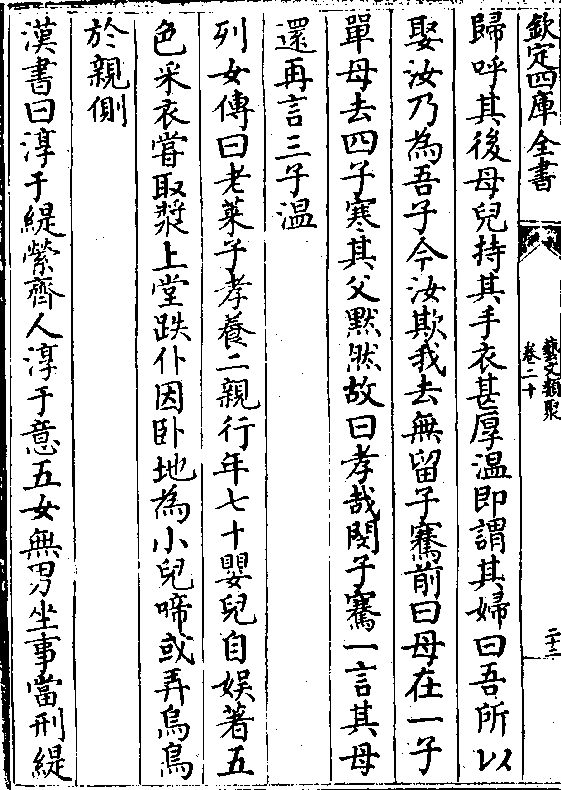 欽定四庫全書
藝文類聚
卷二十
二十二
歸呼其後母兒持其手衣甚厚温即謂其婦曰吾所以
娶汝乃為吾子今汝欺我去無留子騫前曰母在一子
單母去四子寒其父黙然故曰孝哉閔子騫一言其母
還再言三子温
列女傳曰老萊子孝養二親行年七十嬰兒自娱著五
色采衣嘗取漿上堂跌仆因卧地為小兒啼或弄烏鳥
於親側
漢書曰淳于緹縈齊人淳于意五女無男坐事當刑緹